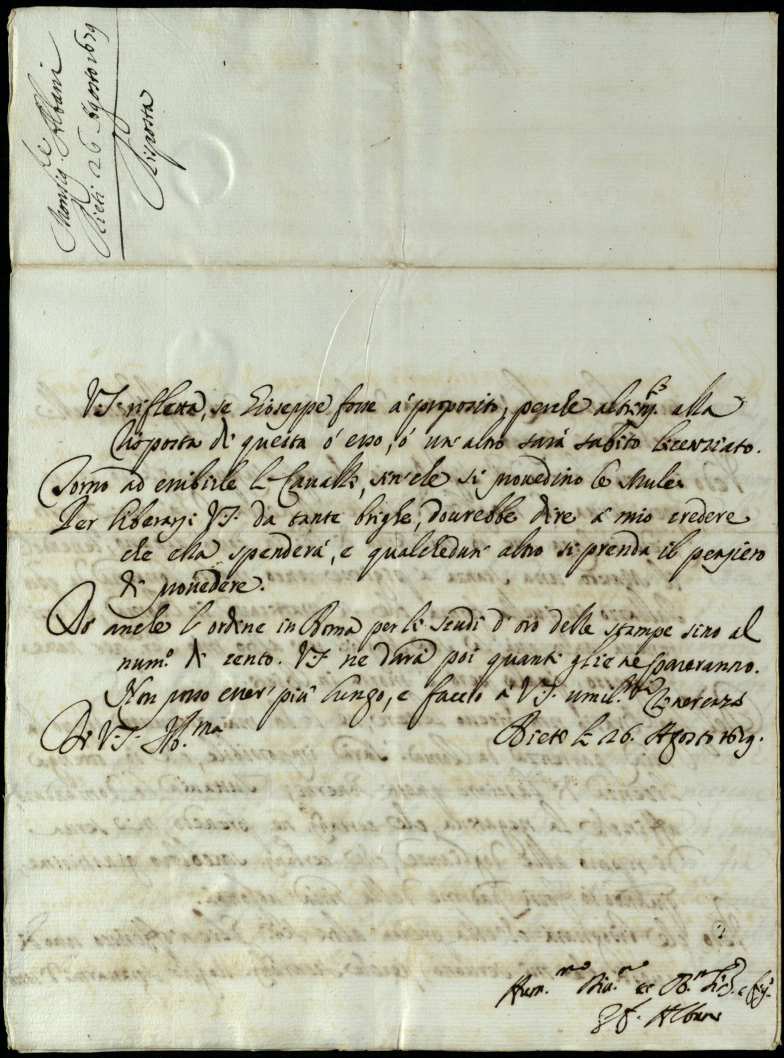 Monsig.re Albani
Rieti 26 Agosto 1679
Risposta
V.S. rifletta, se Gioseppe fosse à proposito, perche altrim.ti alla
risposta di questa ò esso, ò un'altro sarà subito licenziato.
Torno ad esibirle li Cavalli, sin che si provedino le Mule.
Per liberarsi V.S. da tante brighe, dourebbe dire à mio credere
che ella spenderà, e qualchedun' altro si prenda il pensiero
di provedere.
Dò anche l'ordine in Roma per li scudi d'oro delle stampe sino al
num.o di cento. V.S. ne darà poi quanti gliene pareranno.
Non posso esser più lungo, e faccio à V.S. umil.ma Riverenza
Di V.S. Ill.ma
Rieti li 26. Agosto 1679.